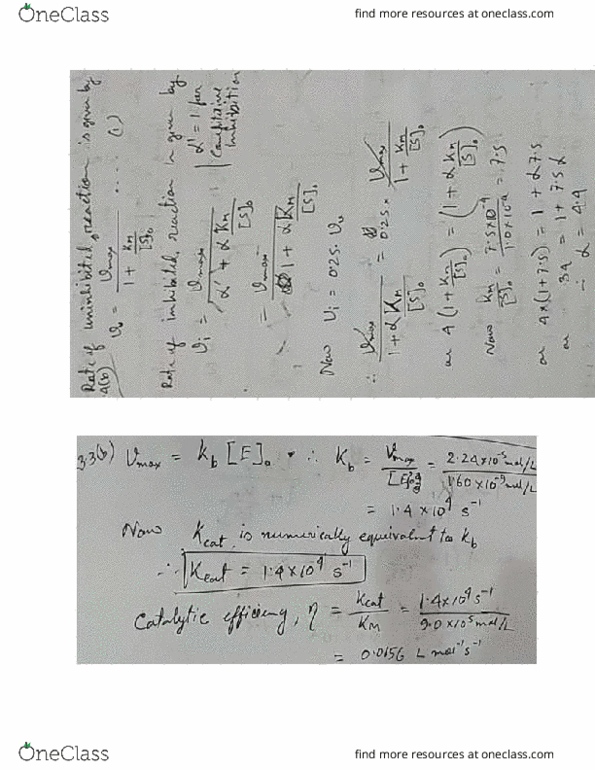 OneClass
find more resources at oneclass.com
Rate of uninhibited reaction is given by
4(b)
ϑ₀ = ϑmax / (1 + Km/[S]₀) .... (1)
Rate of inhibited reaction is given by
ϑi = ϑmax / (α' + α Km/[S]₀) | α' = 1 for Competitive inhibition
= ϑmax / (1 + α Km/[S]₀)
Now ϑi = 0.25 ϑ₀
∴ ϑmax / (1 + α Km/[S]₀) = 0.25 × ϑmax / (1 + Km/[S]₀)
or 4 (1 + Km/[S]₀) = (1 + α Km/[S]₀)
Now Km/[S]₀ = 7.5×10⁻⁴ / 1.0×10⁻⁴ = 7.5
or 4×(1+7.5) = 1 + α 7.5
or 34 = 1 + 7.5 α
∴ α = 4.4
3.3(b) ϑmax = kb [E]₀ ∴ Kb = ϑmax / [E]₀ = 2.24×10⁻⁵ mol/L / 1.60×10⁻⁹ mol/L
= 1.4×10⁴ s⁻¹
Now Kcat is numerically equivalent to kb
∴ Kcat = 1.4×10⁴ s⁻¹
Catalytic efficiency, η = Kcat / KM = 1.4×10⁴ s⁻¹ / 9.0×10⁵ mol/L
= 0.0156 L mol⁻¹ s⁻¹
OneClass
find more resources at oneclass.com